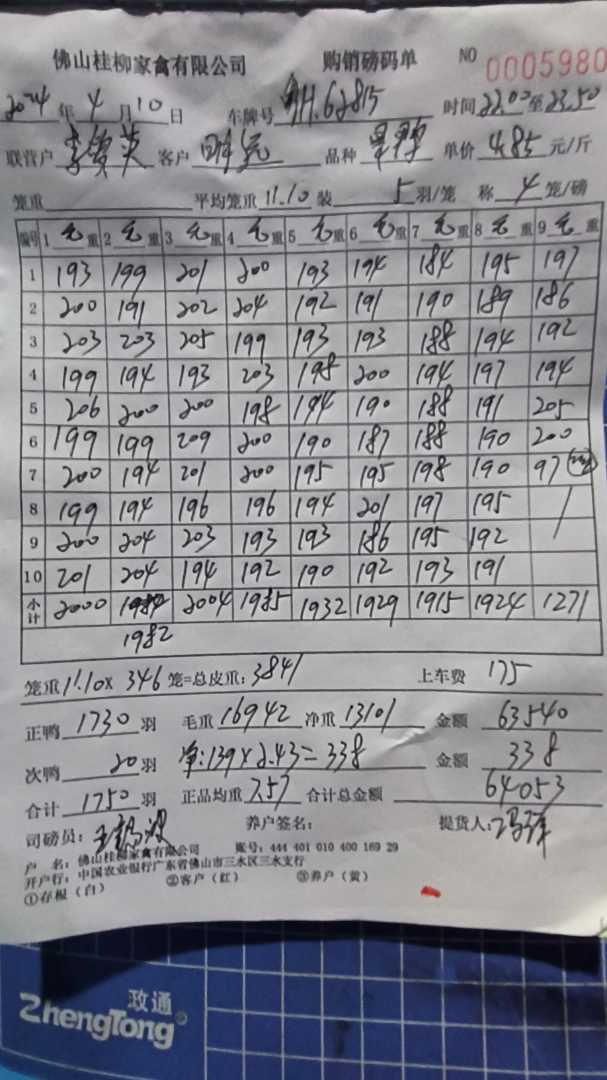 佛山桂柳家禽有限公司 购销磅码单 NO 0005980
2024年4月10日 车牌号 H.62815 时间22.00至23.50
联营户 客户 品种 单价4.85元/斤
笼重 平均笼重11.10 装5羽/笼 称4笼/磅
编号 1毛重 2毛重 3毛重 4毛重 5毛重 6毛重 7毛重 8毛重 9毛重
1 193 199 201 200 193 194 184 195 197
2 200 191 202 204 192 191 190 189 186
3 203 203 205 199 193 193 188 194 192
4 199 194 193 203 198 200 194 197 194
5 206 200 200 198 194 190 188 191 205
6 199 199 209 200 190 187 188 190 200
7 200 194 201 200 195 195 198 190 97
8 199 194 196 196 194 201 197 195
9 200 204 203 193 193 186 195 192
10 201 204 194 192 190 192 193 191
小计 2000 2004 1985 1932 1929 1915 1924 1271
1982
笼重11.10×346笼=总皮重:3841 上车费 175
正鸭1730羽 毛重16942 净重13101 金额63540
次鸭20羽 净:139×2.43=338 金额338
合计1750羽 正品均重7.57 合计总金额64053
司磅员: 养户签名: 提货人:
户 名:佛山桂柳家禽有限公司 账号:444 401 010 400 169 29
开户行:中国农业银行广东省佛山市三水区三水支行
①存根(白) ②客户(红) ③养户(黄)
政通
ZhengTong®